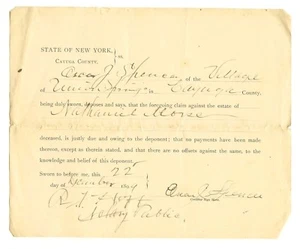 STATE OF NEW YORK, } ss.
CAYUGA COUNTY.
Oscar J. Spencer of the Village
of Union Springs in Cayuga County,
being duly sworn, deposes and says, that the foregoing claim against the estate of
Nathaniel Morse
deceased, is justly due and owing to the deponent; that no payments have been made
thereon, except as therein stated, and that there are no offsets against the same, to the
knowledge and belief of this deponent.
Sworn to before me, this 22
day of
Notary Public.